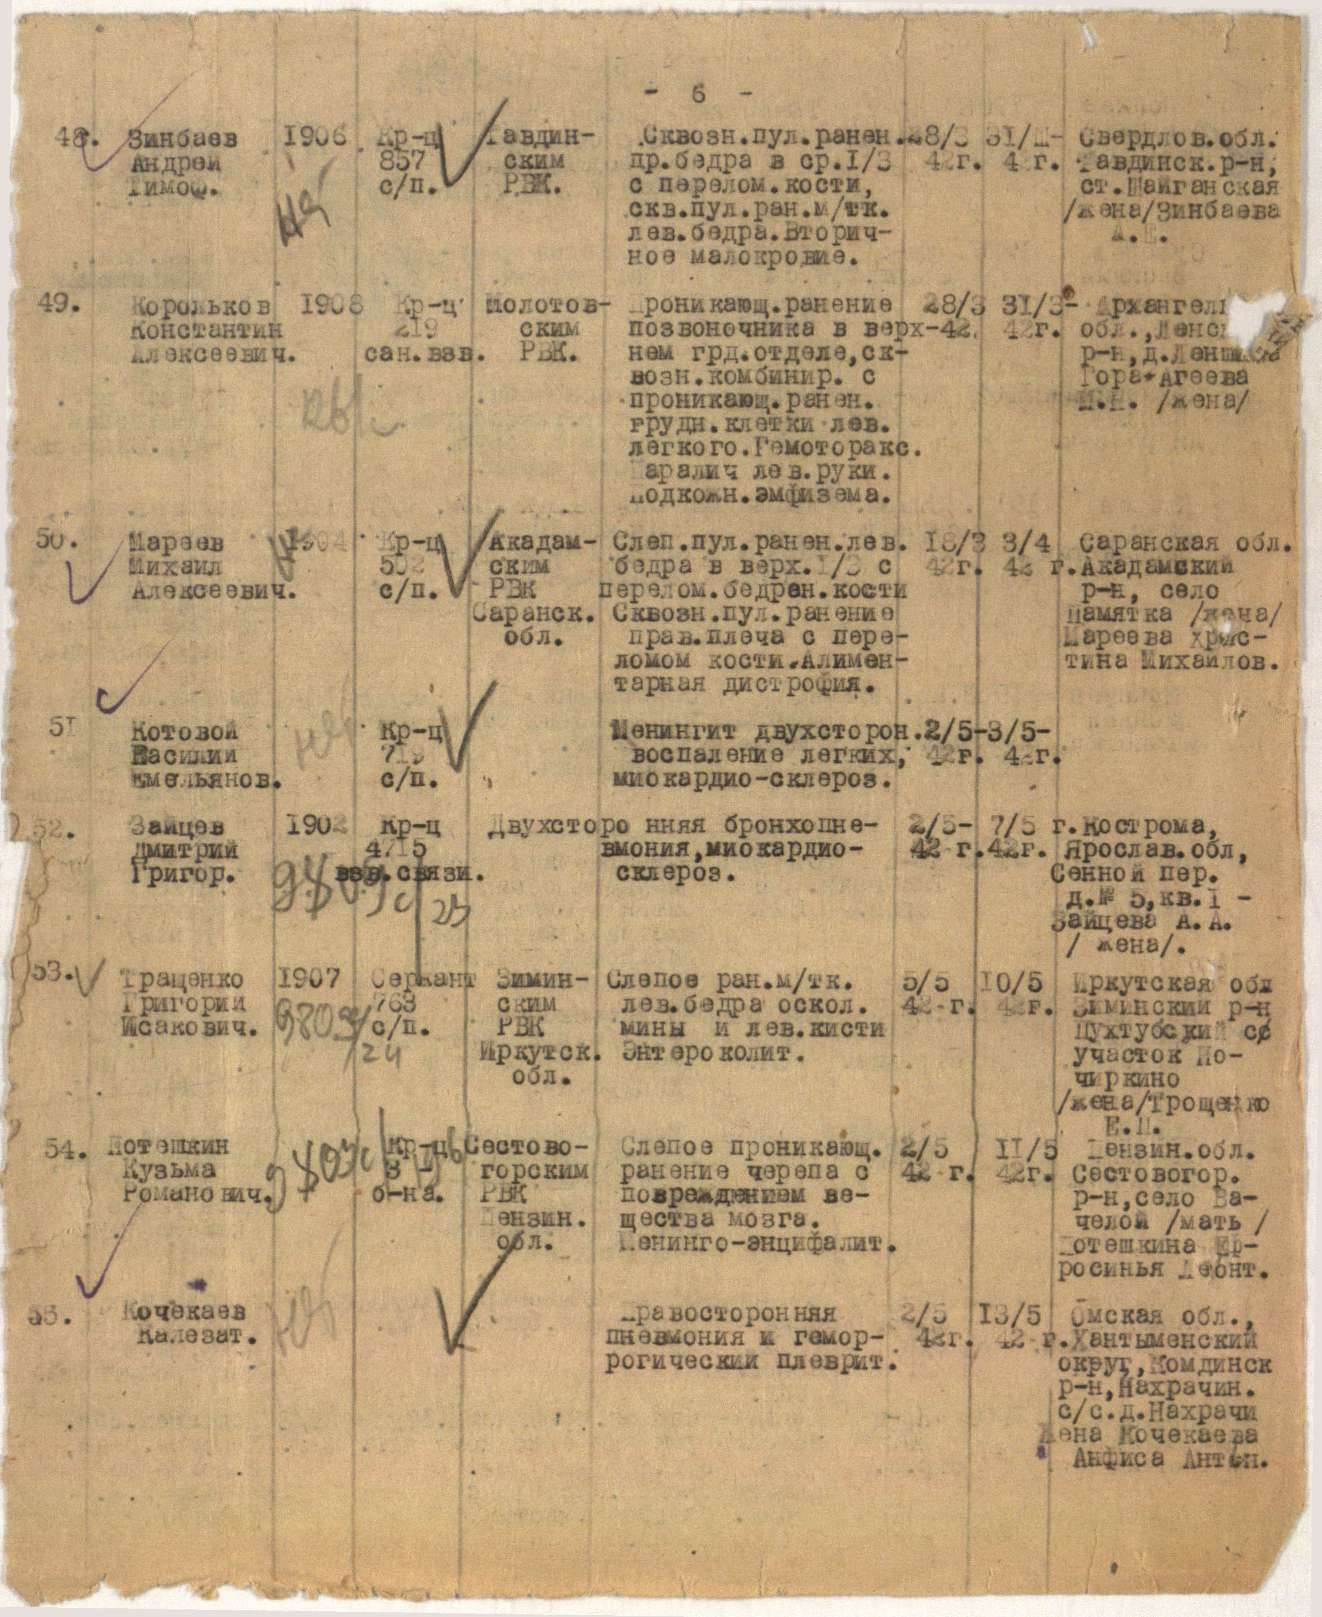 - 6 -
48. Зинбаев 1906 Кр-ц Тавдин- Сквозн.пул.ранен. 28/3 31/Ш- Свердлов.обл.
Андрей 857 ским пр.бедра в ср.1/3 42г. 42г. Тавдинск.р-н,
Тимоф. с/п. РВК. с перелом.кости, ст.Шайганская
скв.пул.ран.м/тк. /жена/Зинбаева
лев.бедра.Вторич- А.
ное малокровие.
49. Корольков 1908 Кр-ц Молотов- Проникающ.ранение 28/3 31/3- Архангель
Константин 219 ским позвоночника в верх- 42. 42г. обл.,Ленск
Алексеевич. сан.взв. РВК. нем грд.отделе,ск- р-н,д.
возн.комбинир. с Гора-Агеева
проникающ.ранен. /жена/
грудн.клетки лев.
легкого.Гемоторакс.
Паралич лев.руки.
Подкожн.эмфизема.
50. Мареев 1904 Кр-ц Акадам- Слеп.пул.ранен.лев. 18/3 3/4 Саранская обл.
Михаил ским бедра в верх.1/3 с 42г. 42 г. Акадамский
Алексеевич. с/п. РВК перелом.бедрен.кости р-н, село
Саранск. Сквозн.пул.ранение Памятка /жена/
обл. прав.плеча с пере- Мареева Хрис-
ломом кости.Алимен- тина Михайлов.
тарная дистрофия.
51 Котовой Кр-ц Менингит двухсторон. 2/5- 3/5-
Василий 719 воспаление легких, 42г. 42г.
Емельянов. с/п. миокардио-склероз.
52. Зайцев 1902 Кр-ц Двухсторо нняя бронхопне- 2/5- 7/5 г.Кострома,
Дмитрий 4715 вмония,миокардио- 42 г. 42г. Ярослав.обл,
Григор. взв.связи. склероз. Сенной пер.
д.№ 5,кв.1 -
Зайцева А.А.
/ жена/.
53. Траценко 1907 Сержант Зимин- Слепое ран.м/тк. 5/5 10/5 Иркутская обл
Григорий 763 ским лев.бедра оскол. 42 г. 42г. Зиминский р-н
Исакович. с/п. РВК мины и лев.кисти Пухтубский сс
Иркутск. Энтероколит. участок По-
обл. чиркино
/жена/Трощенко
Е.П.
54. Потешкин Кр-ц Сестово- Слепое проникающ. 2/5 11/5 Пензин.обл.
Кузьма горским ранение черепа с 42 г. 42г. Сестовогор.
Романович. б-на. РВК повреждением ве- р-н,село Ва-
Пензин. щества мозга. челой /мать /
обл. Менинго-энцифалит. Потешкина Еф-
росинья Леонт.
55. Кочекаев Правосторонняя 2/5 13/5 Омская обл.,
Калезат. пневмония и гемор- 42г. 42 г. Хантыменский
рогический плеврит. округ,Комдинск
р-н,Нахрачин.
с/с.д.Нахрачи
Жена Кочекаева
Анфиса Антон.